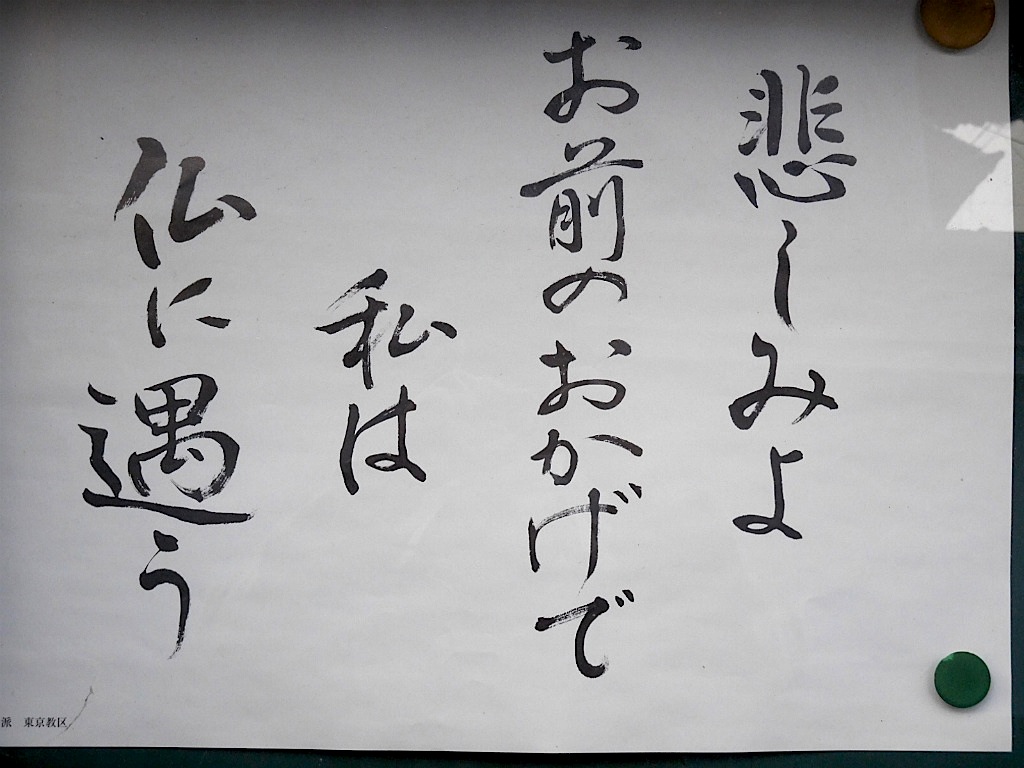 悲しみよ
お前のおかげで
私は
仏に遇う
派　東京教区